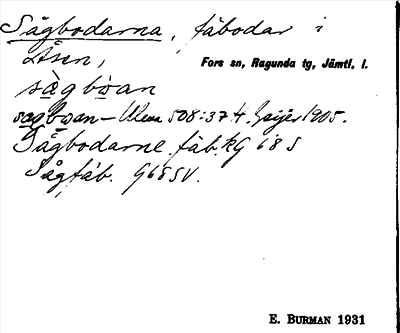 Sågbodarna, fäbodar i
Åsen,
Fors sn, Ragunda tg, Jämtl. l.
sàgbòan
sagboan – Ulem 508:37 H. Geijer 1905.
Sågbodarne fäb. kg 68 S
Sågfäb. G68SV.
E. BURMAN 1931